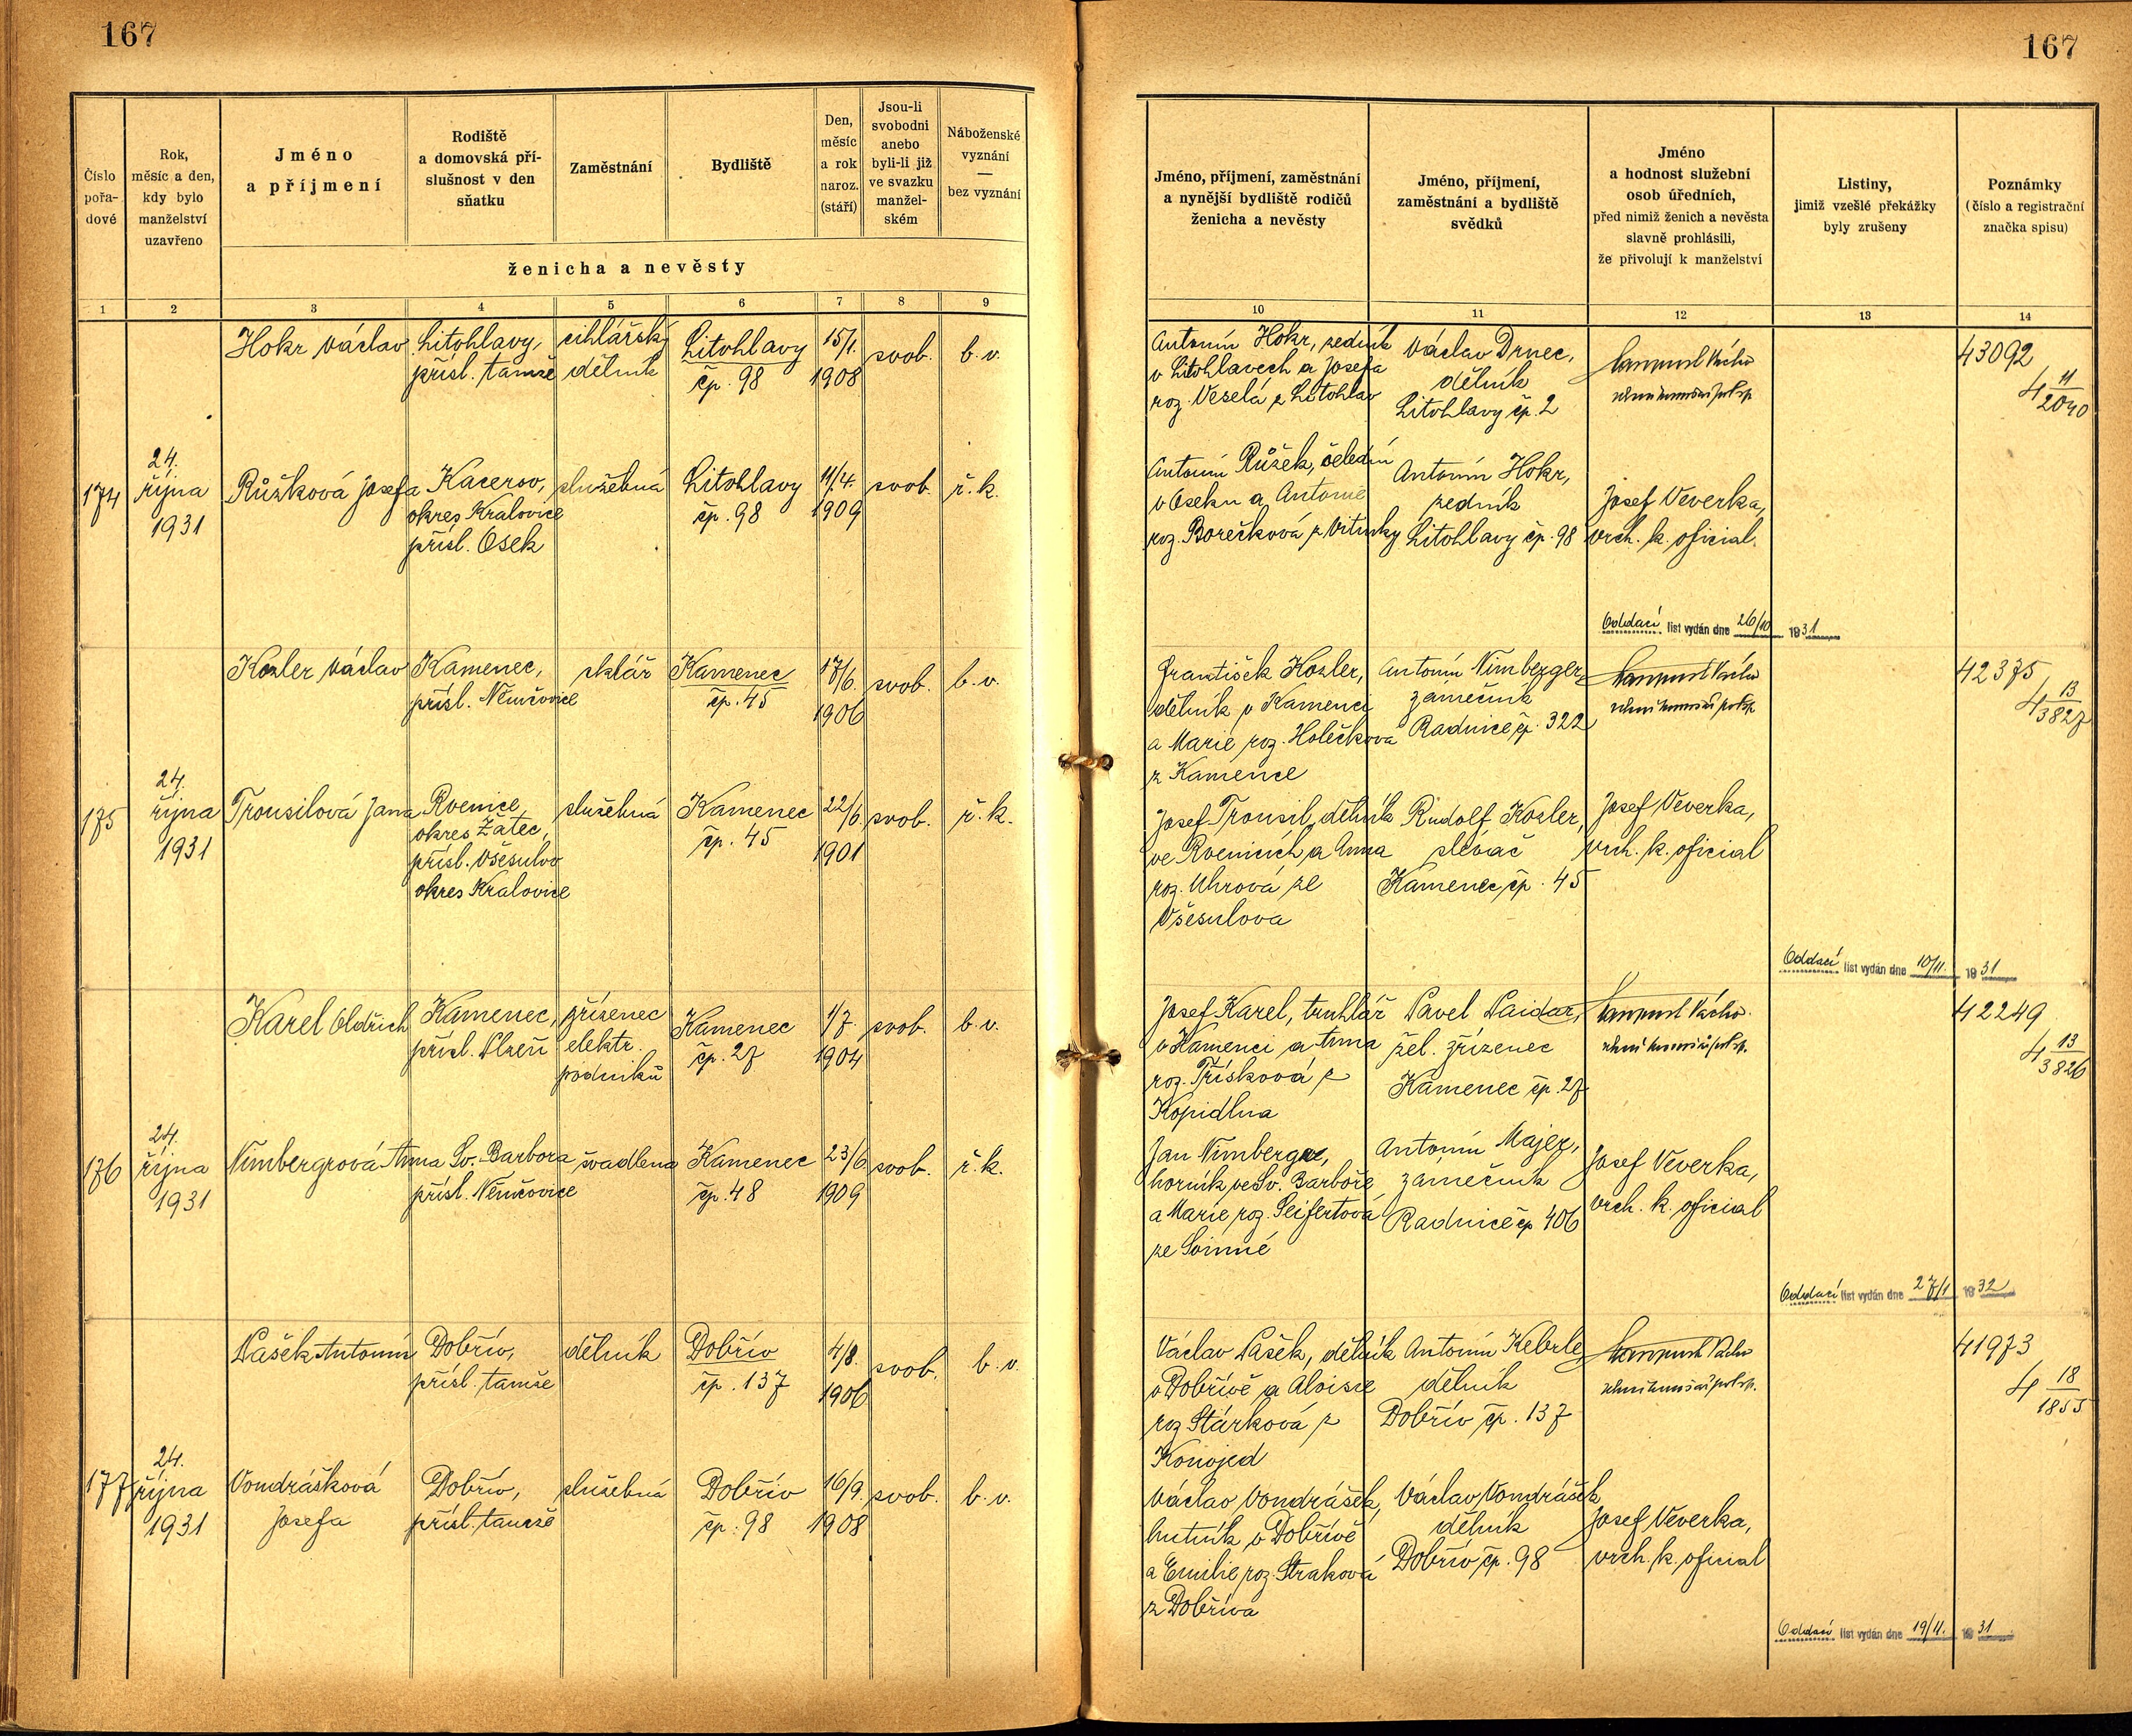 167
167
Číslo
pořa-
dové
Rok,
měsíc a den,
kdy bylo
manželství
uzavřeno
Jméno
a příjmení
Rodiště
a domovská pří-
slušnost v den
sňatku
Zaměstnání
Bydliště
Den,
měsíc
a rok
naroz.
(stáří)
Jsou-li
svobodni
anebo
byli-li již
ve svazku
manžel-
ském
Náboženské
vyznání
—
bez vyznání
ženicha a nevěsty
1 2 3 4 5 6 7 8 9
Jméno, příjmení, zaměstnání
a nynější bydliště rodičů
ženicha a nevěsty
Jméno, příjmení,
zaměstnání a bydliště
svědků
Jméno
a hodnost služební
osob úředních,
před nimiž ženich a nevěsta
slavně prohlásili,
že přivolují k manželství
Listiny,
jimiž vzešlé překážky
byly zrušeny
Poznámky
(číslo a registrační
značka spisu)
10 11 12 13 14
Hokr Václav
Litohlavy,
přísl. tamže
cihlářský
dělník
Litohlavy
čp. 98
15/1.
1908
svob.
b. v.
Antonín Hokr, zedník
v Litohlavech a Josefa
roz. Veselá z Litohlav
Václav Drnec,
dělník
Litohlavy čp. 2
43092
4 11/2040
174
24.
října
1931
Růžková Josefa
Kacerov,
okres Kralovice
přísl. Osek
služebná
Litohlavy
čp. 98
11/4.
1909
svob.
ř. k.
Antonín Růžek, čeledín
v Oseku a Antonie
roz. Borečková z Vitinky
Antonín Hokr,
zedník
Litohlavy čp. 98
Josef Veverka,
vrch. k. oficial.
Oddací list vydán dne 26/10 1931
Kozler Václav
Kamenec,
přísl. Němčovice
sklář
Kamenec
čp. 45
17/6.
1906
svob.
b. v.
František Kozler,
dělník v Kamenci
a Marie roz. Holečkova
z Kamence
Antonín Nimberger,
zámečník
Radnice čp. 322
42375
4 13/3827
175
24.
října
1931
Trousilová Jana
Rvenice,
okres Žatec,
přísl. Všesulov
okres Kralovice
služebná
Kamenec
čp. 45
22/6
1901
svob.
ř. k.
Josef Trousil, dělník
ve Rvenicích a Anna
roz. Uhrová ze
Všesulova
Rudolf Kozler,
slévač
Kamenec čp. 45
Josef Veverka,
vrch. k. oficial
Oddací list vydán dne 10/11. 1931
Karel Oldřich
Kamenec,
přísl. Plzeň
zřízenec
elektr.
podniků
Kamenec
čp. 27
1/7.
1904
svob.
b. v.
Josef Karel, truhlář
v Kamenci a Anna
roz. Třísková z
Kopidlna
Pavel Paidar,
žel. zřízenec
Kamenec čp. 27
42249
4 13/3826
176
24.
října
1931
Nimbergrová Anna
Sv. Barbora
přísl. Němčovice
švadlena
Kamenec
čp. 48
23/6
1909
svob.
ř. k.
Jan Nimberger,
horník ve Sv. Barboře
a Marie roz. Seifertová
ze Svinné
Antonín Majer,
zámečník
Radnice čp 406
Josef Veverka,
vrch. k. oficial
Oddací list vydán dne 27/1 1932
Pašek Antonín
Dobřív,
přísl. tamže
dělník
Dobřív
čp. 137
4/8.
1906
svob.
b. v.
Václav Pašek, dělník
v Dobřívě a Aloisie
roz Stárková z
Konojed
Antonín Keberle,
dělník
Dobřív čp. 137
41973
4 18/1855
177
24.
října
1931
Vondrášková
Josefa
Dobřív,
přísl. tamže
služebná
Dobřív
čp. 98
16/9.
1908
svob.
b. v.
Václav Vondrášek,
hutník v Dobřívě
a Emilie roz. Straková
z Dobříva
Václav Vondrášek
dělník
Dobřív čp. 98
Josef Veverka,
vrch. k. oficial
Oddací list vydán dne 19/11. 1931